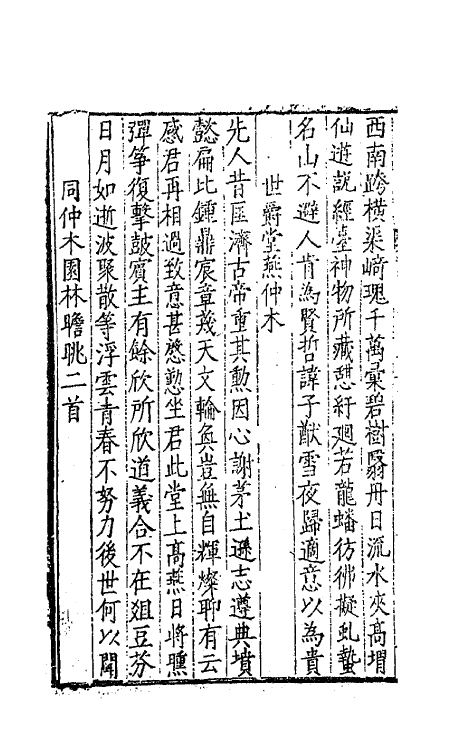 西南跨橫渠﨑瑰千萬彙碧樹翳丹日流水夾高堳
仙遊說經臺神物所藏憇紆廻若龍蟠彷彿擬虬蟄
名山不避人肯為賢哲諱子猷雪夜歸適意以為貴
世爵堂燕仲木
先人昔匡濟古帝重其勲因心謝茅土遜志遵典墳
懿扁比鍾鼎宸章蔑天文輪奐豈無自輝燦聊有云
感君再相過致意甚慇懃坐君此堂上高燕日將曛
彈箏復擊皷賔主有餘欣所欣道義合不在爼豆芬
日月如逝波聚散等浮雲青春不努力後世何以聞
同仲木園林瞻眺二首